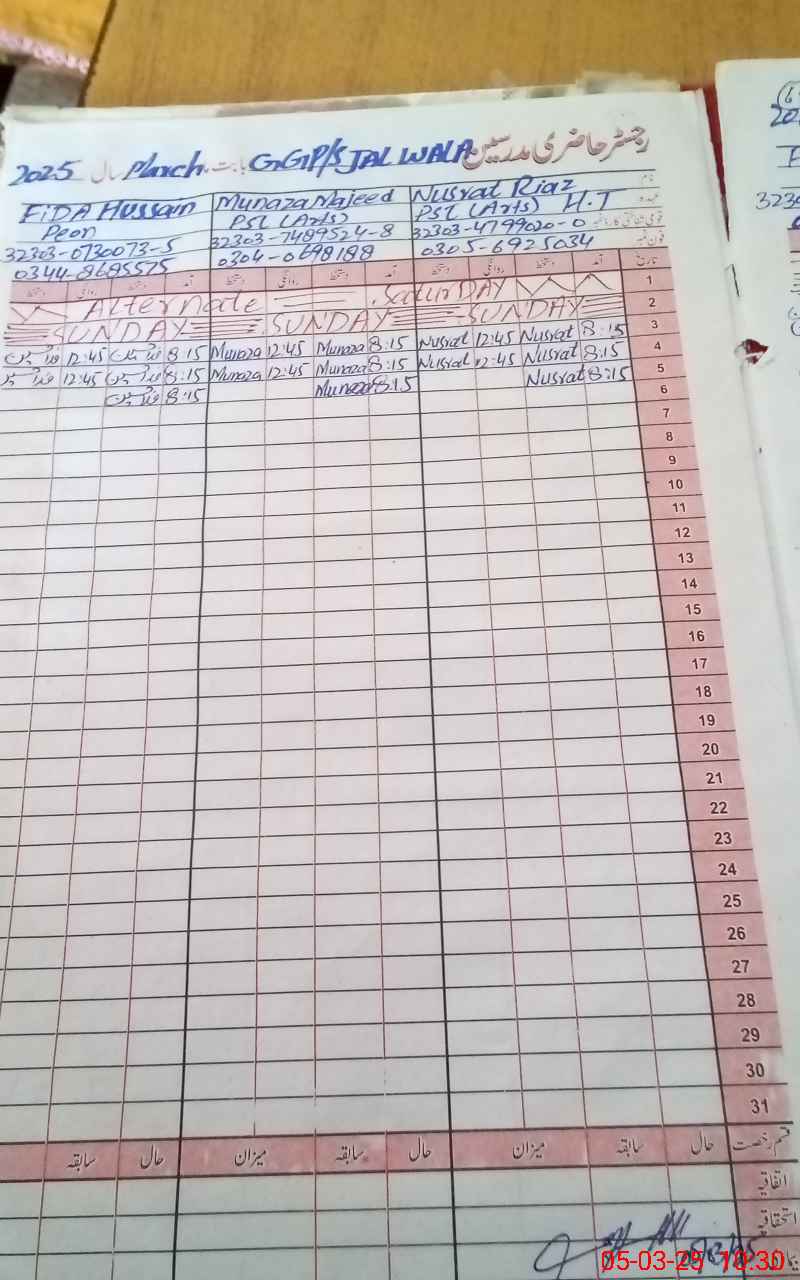 رجسٹر حاضری مدرسین GGP/S JAL WALA بابت March سال 2025
نام Nusrat Riaz Munaza Majeed FIDA Hussain
عہدہ PST (Arts) H.T PST (Arts) Peon
32303-4799020-0 32303-7489524-8 32303-0730073-5
فون نمبر 0305-6925034 0304-0698188 0344-8685575
تاریخ آمد دستخط روانگی دستخط آمد دستخط روانگی دستخط آمد دستخط روانگی دستخط
1 Alternate Saturday
2 SUNDAY SUNDAY SUNDAY
3 8:15 Nusrat 12:45 Nusrat 8:15 Munaza 12:45 Munaza 8:15 12:45
4 8:15 Nusrat 12:45 Nusrat 8:15 Munaza 12:45 Munaza 8:15 12:45
5 8:15 Nusrat 8:15 Munaza 8:15
6
7
8
9
10
11
12
13
14
15
16
17
18
19
20
21
22
23
24
25
26
27
28
29
30
31
قسم رخصت حال سابقہ میزان حال سابقہ میزان حال سابقہ
اتفاقیہ
استحقاقیہ
05-03-25 10:30